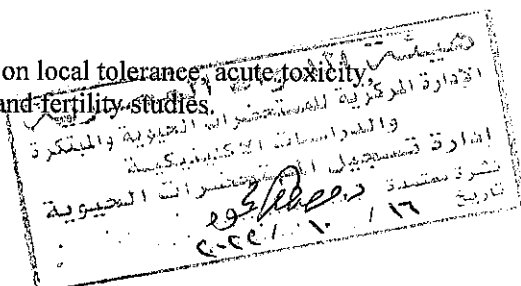 on local tolerance, acute toxicity,
and fertility studies.
هيئة الدواء المصرية
الإدارة المركزية للمستحضرات الحيوية والمبتكرة
والدراسات الاكلينيكية
إدارة تسجيل المستحضرات الحيوية
نشرة معتمدة
تاريخ ١٦ / ١٠ /